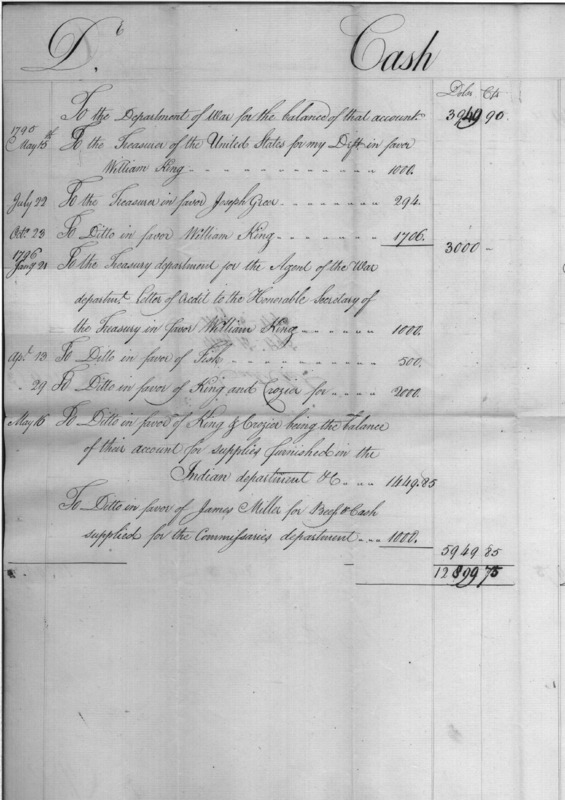 Dr Cash
Dolrs Cts
To the Department of War for the balance of that account 3949 90
1795
May 15th To the Treasurer of the United States for my Dft in favor
William King 1000.
July 22 To the Treasurer in favor Joseph Greer 294.
Octo. 23 To Ditto in favor William King 1706. 3000 -
1796
Jany 21 To the Treasury department for the Agent of the War
departmt letter of Credit to the Honorable Secretary of
the Treasury in favor William King 1000.
Apl. 13 To Ditto in favor of Fisk 500.
29 To Ditto in favor of King and Crozier for 2000.
May 16 To Ditto in favor of King & Crozier being the balance
of their account for supplies furnished in the
Indian department &c 1449.85
To Ditto in favor of James Miller for Beef & Cash
supplied for the Commissaries department 1000.
5949 85
12899 75